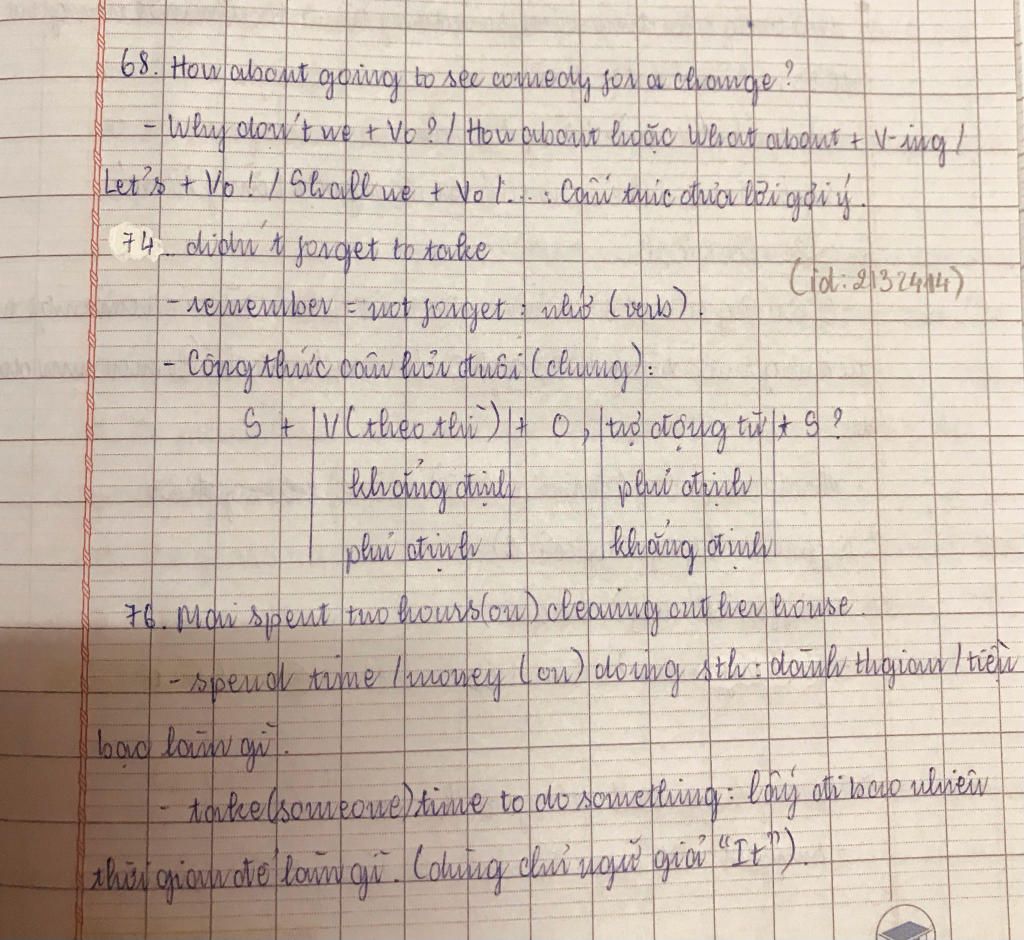 68. How about going to see comedy for a change?
- Why don't we + Vo? / How about hoặc What about + V-ing /
Let's + Vo! / Shall we + Vo!...: Cấu trúc đưa lời gợi ý.
74. didn't forget to take
(id: 2132414)
- remember = not forget: nhớ (verb).
- Công thức câu hỏi đuôi (chung):
S + | V (theo thì) | + O, | trợ động từ | + S?
khẳng định phủ định
phủ định khẳng định
76. Mai spent two hours (on) cleaning out her house.
- spend time / money (on) doing sth: dành thgian / tiền
bạc làm gì.
- take (someone) time to do something: lấy đi bao nhiêu
thời gian để làm gì. (dùng chủ ngữ giả "It").